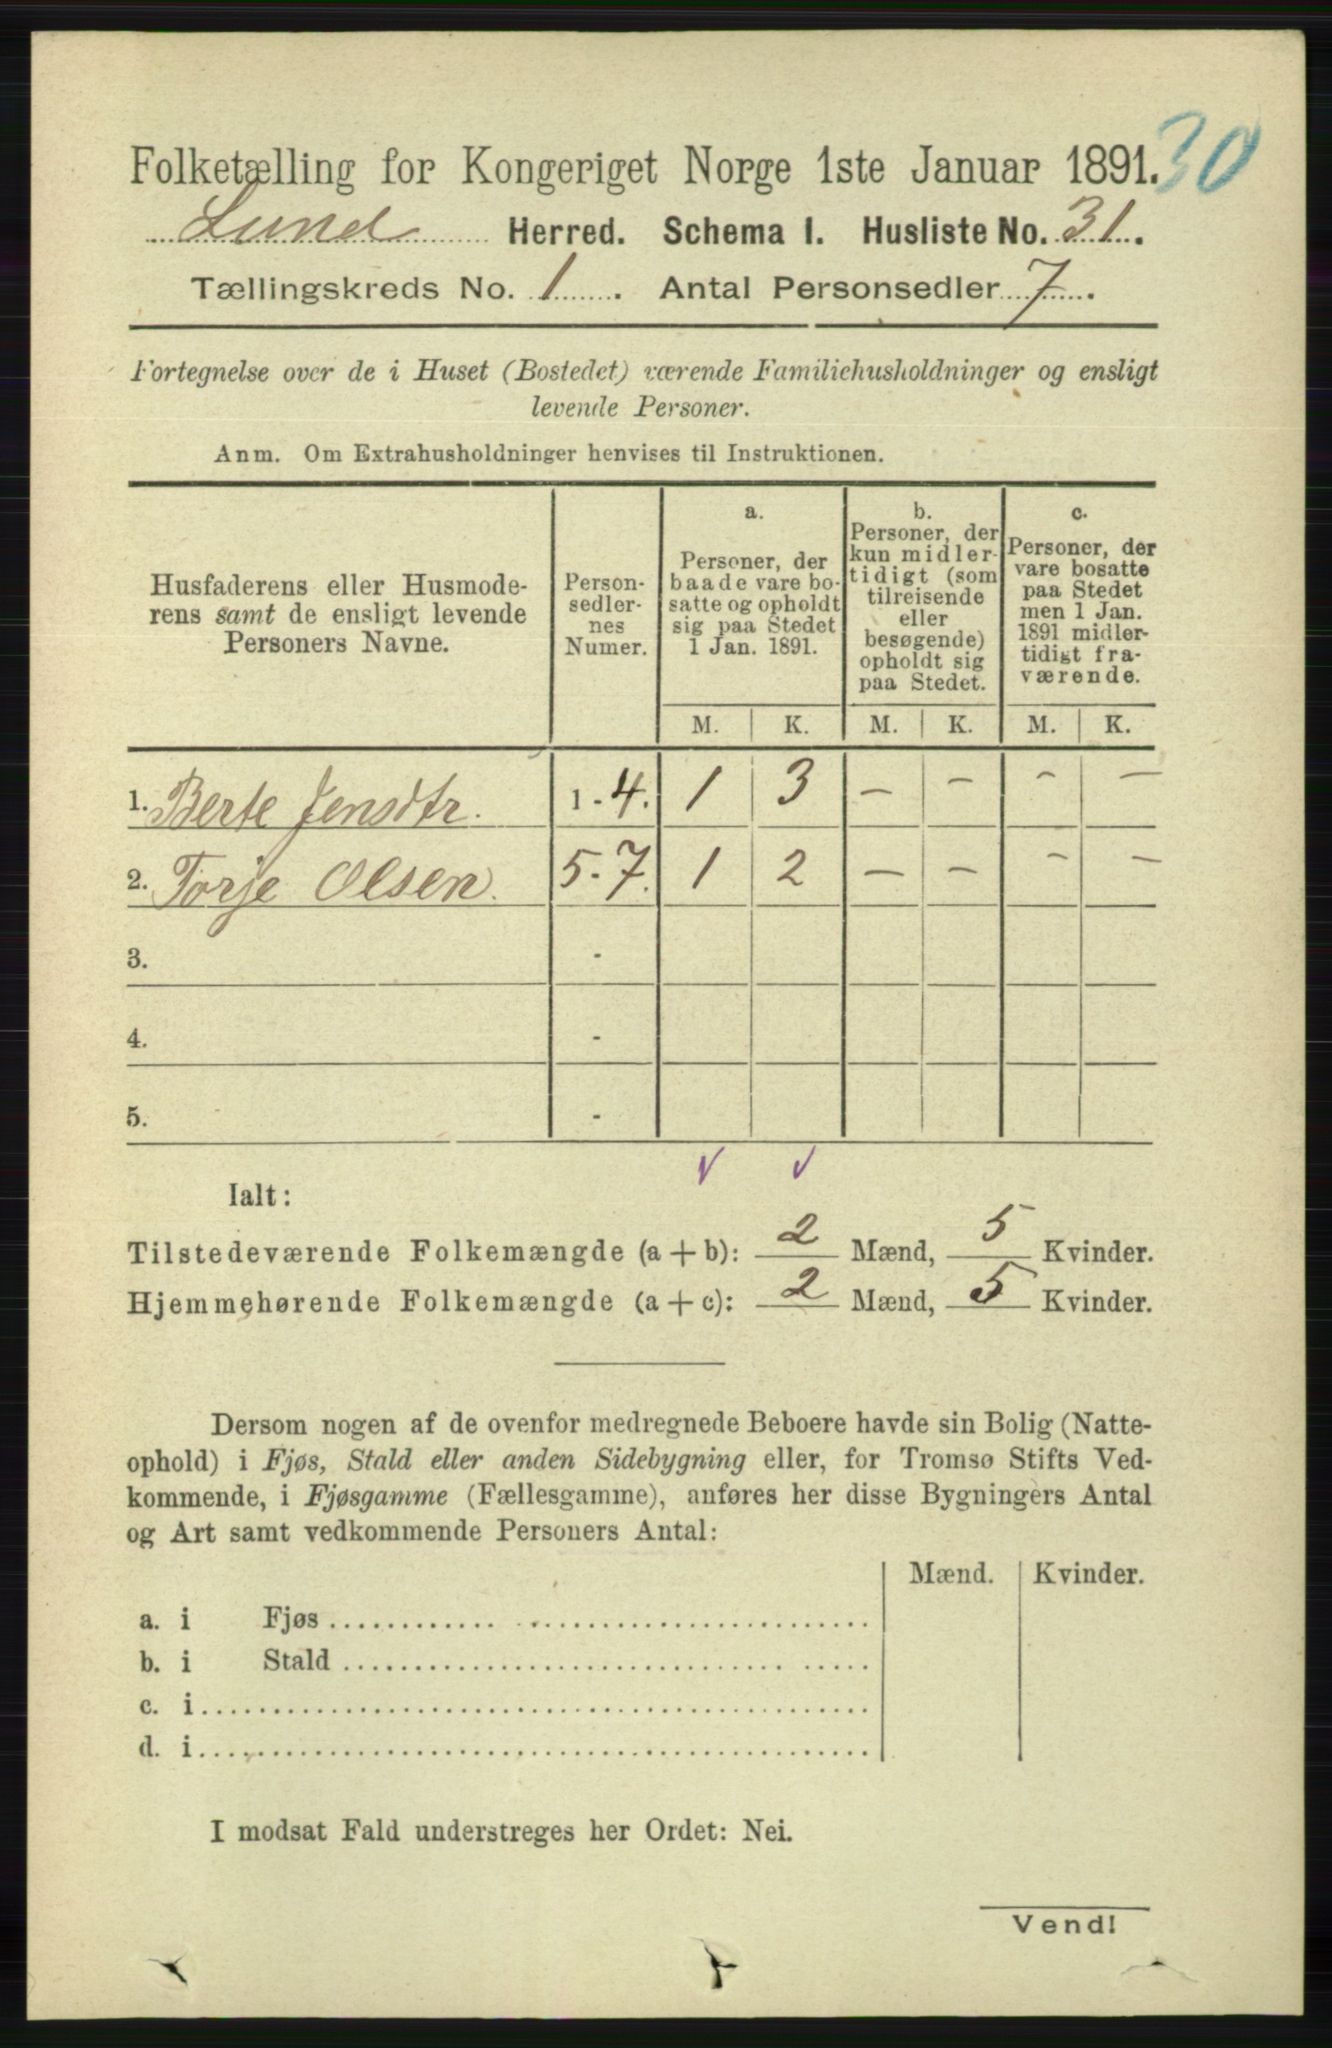 30
Folketælling for Kongeriget Norge 1ste Januar 1891.
Lund Herred. Schema I. Husliste No. 31.
Tællingskreds No. 1. Antal Personsedler 7.
Fortegnelse over de i Huset (Bostedet) værende Familiehusholdninger og ensligt
levende Personer.
Anm. Om Extrahusholdninger henvises til Instruktionen.
Husfaderens eller Husmode-
rens samt de ensligt levende
Personers Navne.
Person-
sedler-
nes
Numer.
a.
Personer, der
baade vare bo-
satte og opholdt
sig paa Stedet
1 Jan. 1891.
b.
Personer, der
kun midler-
tidigt (som
tilreisende
eller
besøgende)
opholdt sig
paa Stedet.
c.
Personer, der
vare bosatte
paa Stedet
men 1 Jan.
1891 midler-
tidigt fra-
værende.
M. K. M. K. M. K.
1. Berte Jensdtr. 1 - 4. 1 3 — — — —
2. Torje Olsen. 5 - 7. 1 2 — — — —
3. -
4. -
5. -
Ialt:
Tilstedeværende Folkemængde (a + b): 2 Mænd, 5 Kvinder.
Hjemmehørende Folkemængde (a + c): 2 Mænd, 5 Kvinder.
Dersom nogen af de ovenfor medregnede Beboere havde sin Bolig (Natte-
ophold) i Fjøs, Stald eller anden Sidebygning eller, for Tromsø Stifts Ved-
kommende, i Fjøsgamme (Fællesgamme), anføres her disse Bygningers Antal
og Art samt vedkommende Personers Antal:
Mænd. Kvinder.
a. i Fjøs
b. i Stald
c. i
d. i
I modsat Fald understreges her Ordet: Nei.
Vend!